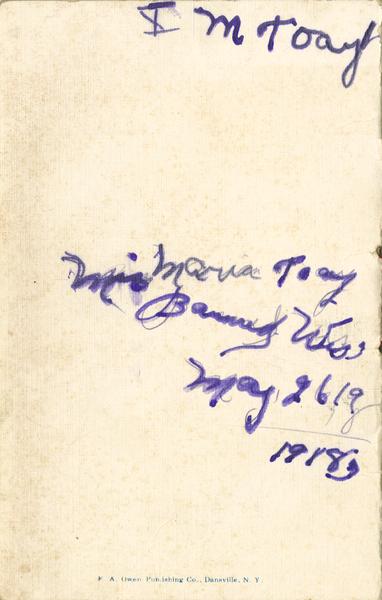 I M Toay
Mis Maria Toay
Wis
May 26 19
1918
F. A. Owen Publishing Co., Dansville, N. Y.